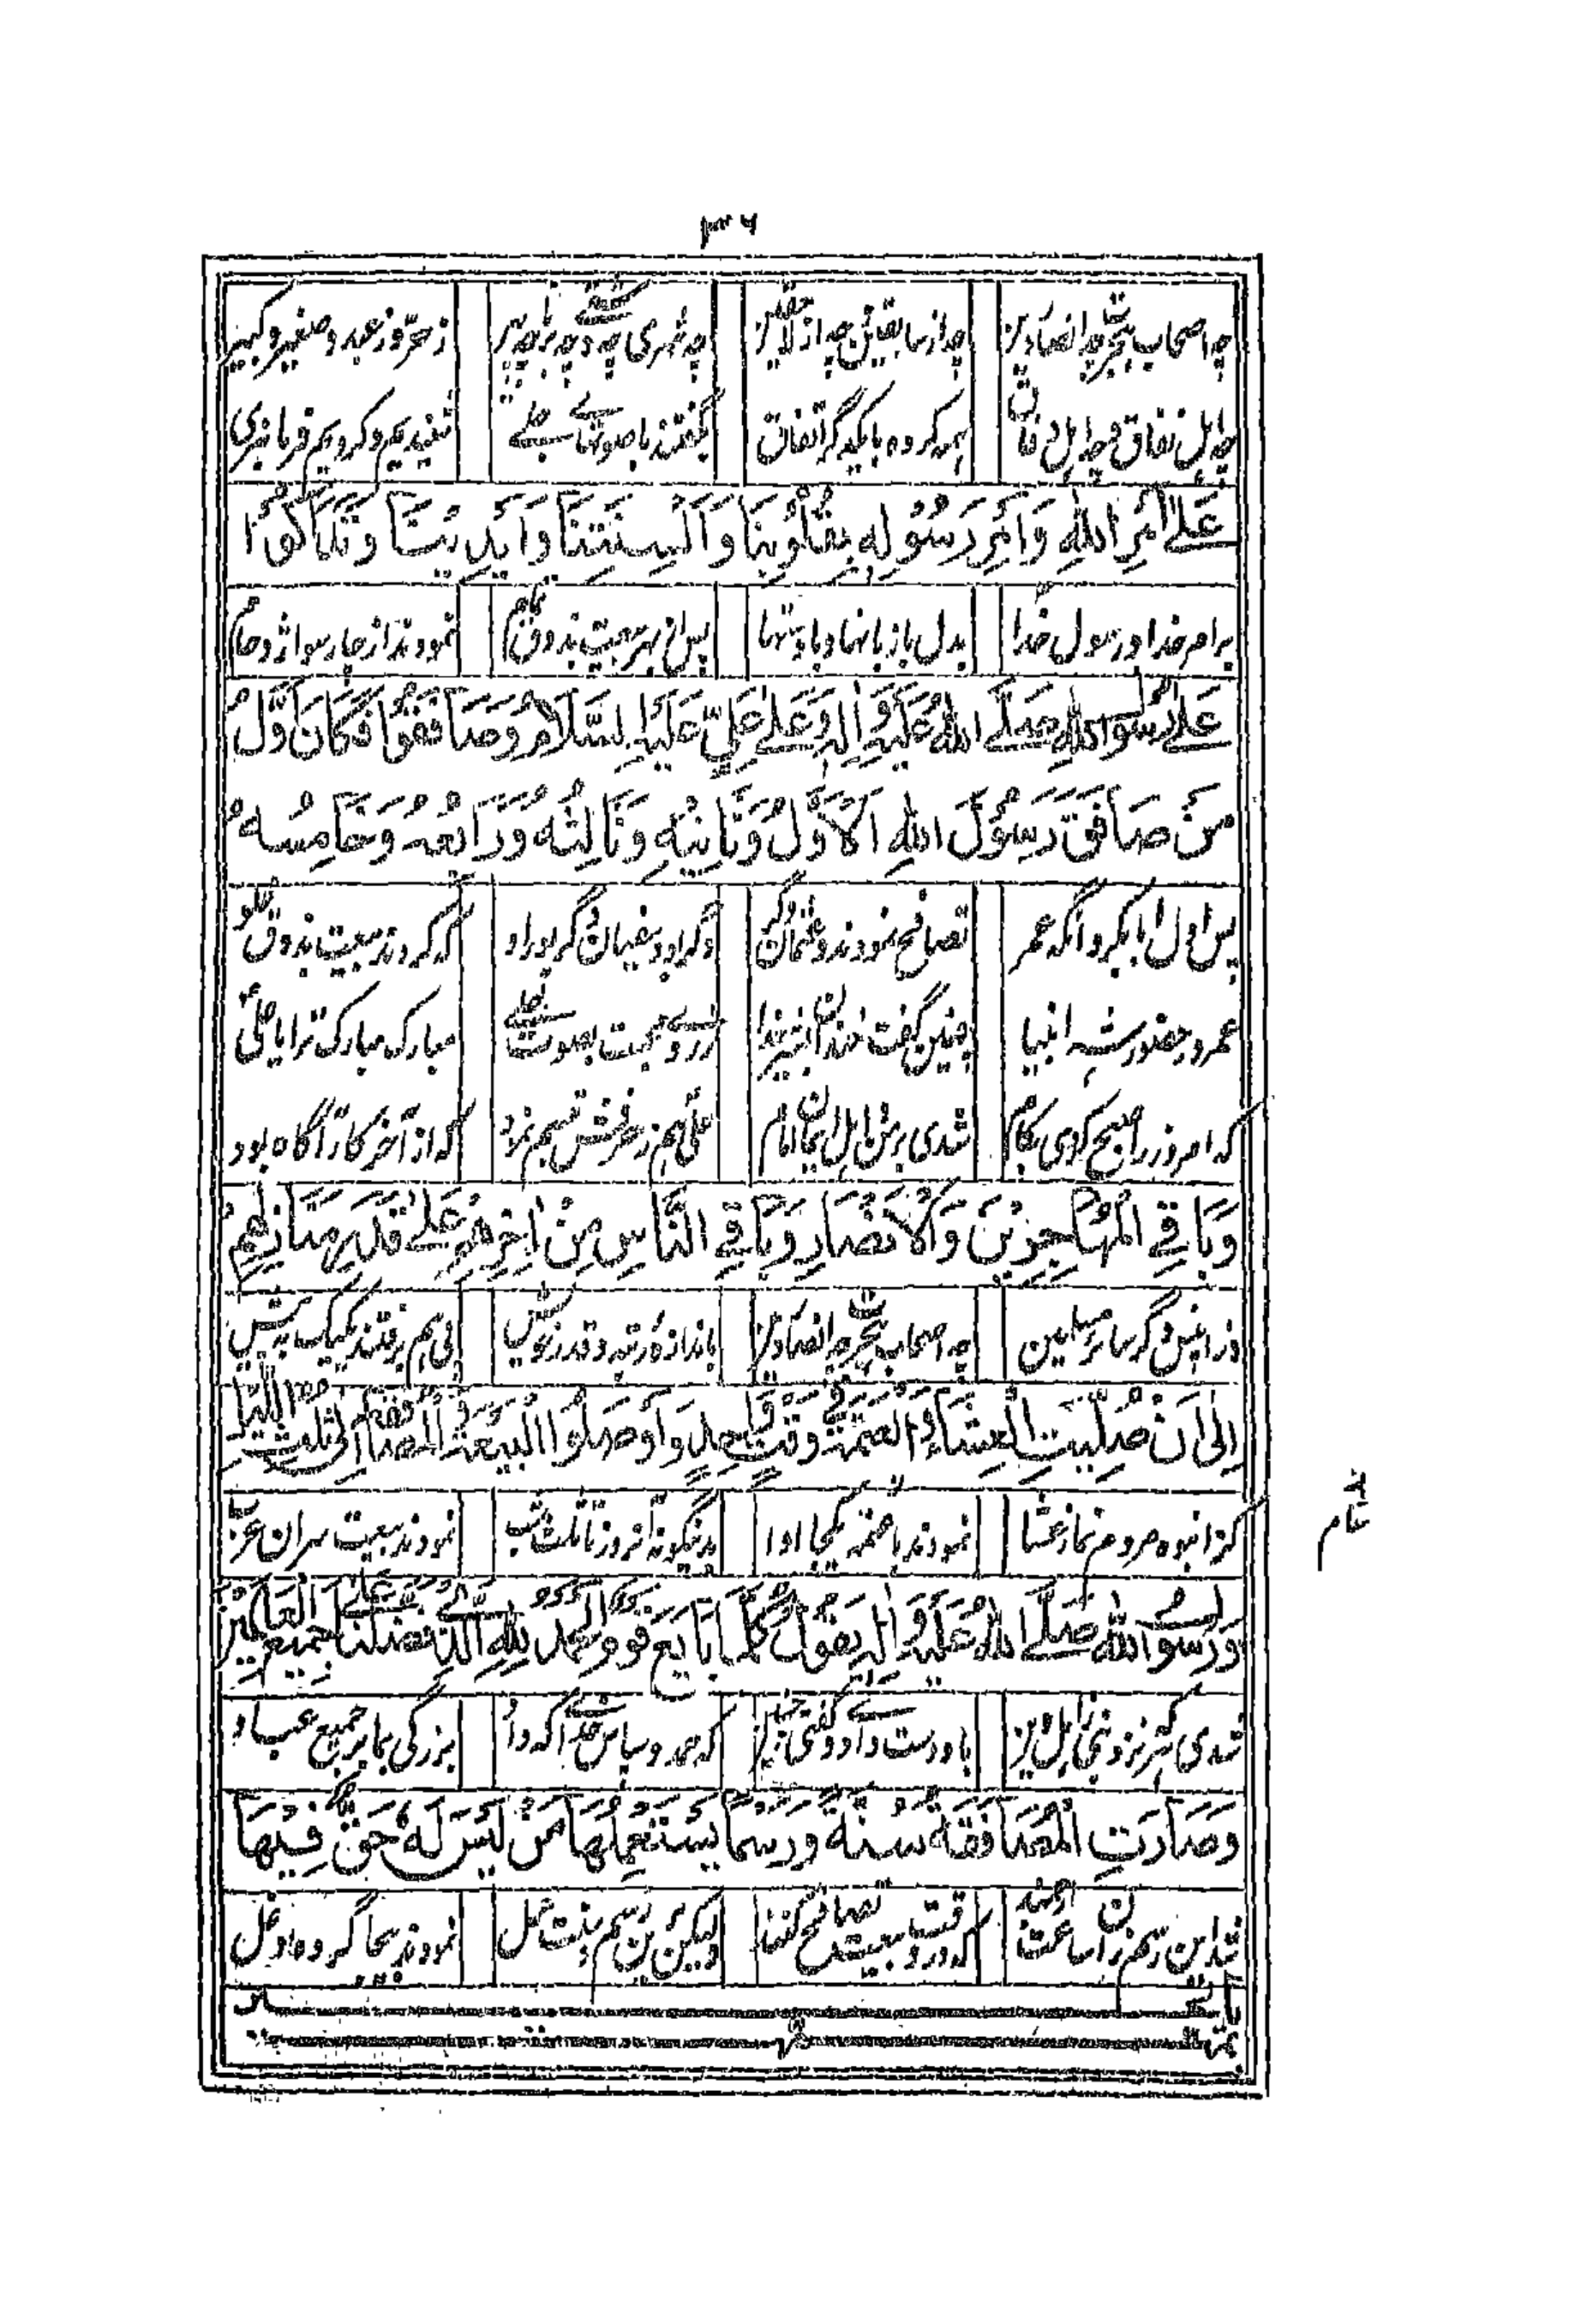 ۳۶
چه اصحاب هجرت چه انصار دین چه از سابقین چه از لاحقین چه شهری چه دشتی چه برنا چه پیر ز حر و ز عبد و صغیر و کبیر
چه اهل نفاق و چه اهل وفاق همه کرده با یکدگر اتفاق بگفتند با صوتهای جلی شنیدیم و کردیم فرمانبری
عَلٰى اَمْرِ اللّٰهِ وَاَمْرِ رَسُوْلِهِ بِقُلُوْبِنَا وَاَلْسِنَتِنَا وَاَيْدِيْنَا وَتَدَاكُّوْا
برامر خدا و رسول خدا بدل باز بانها و با دستها پس از بهر بیعت بذوق تمام نمودند از چار سو ازدحام
عَلٰى رَسُوْلِ اللّٰهِ صَلَّى اللّٰهُ عَلَيْهِ وَاٰلِهِ وَعَلٰى عَلِيٍّ عَلَيْهِ السَّلَامُ وَصَافَقُوْا فَكَانَ اَوَّلُ
مَنْ صَافَقَ رَسُوْلَ اللّٰهِ الْاَوَّلُ وَثَانِيْهِ وَثَالِثُه وَرَابِعُه وَخَامِسُه
پس اول ابابکر و آنگه عمر تصافح نمودند و عثمان دگر دگر بود سفیان دگر پور او که کردند بیعت بذوق
عمر در حضور شه انبیا چنین گفت خندان بشیر خدا ز روی محبت بصوت جلی مبارک مبارک ترا یا علی
که امروز را صبح کردی بکام شدی بر من اهل ایمان امام علی هم ز حرفش تبسم نمود که از آخر کار آگاه بود
وَبَاقِي الْمُهَاجِرِيْنَ وَالْاَنْصَارِ وَبَاقِي النَّاسِ مِنْ اٰخِرِهِمْ عَلٰى قَدْرِ مَنَازِلِهِمْ
وز اینپس دگر سائر مسلمین چه اصحاب هجرت چه انصار دین باندازه رتبه و قدر خویش پی هم برفتند یک یک به پیش
اِلٰى اَنْ صُلِّيَتِ الْعِشَاءُ وَالْعَتَمَةُ فِيْ وَقْتٍ وَاحِدٍ وَاَوْصَلُوا الْبَيْعَةَ وَالْمُصَافَقَةَ اِلٰى ثُلُثِ اللَّيْلِ
کز انبوه مردم نماز عشا نمودند با عتمه یکجا ادا بدینگونه آنروز تا ثلث شب نمودند بیعت سران عرب
وَرَسُوْلُ اللّٰهِ صَلَّى اللّٰهُ عَلَيْهِ وَاٰلِهِ يَقُوْلُ كُلَّمَا بَايَعَ قَوْمٌ اَلْحَمْدُ لِلّٰهِ الَّذِيْ فَضَّلَنَا عَلٰى جَمِيْعِ الْعَالَمِيْنَ
شدی هر که نزد نبی ز اهل دین باو دست دادی و گفتی چنین که حمد و سپاس خدا را که داد بزرگی بما بر جمیع عباد
وَصَارَتِ الْمُصَافَقَةُ سُنَّةً وَرَسْمًا يَسْتَعْمِلُهَا مَنْ لَيْسَ لَهُ حَقٌّ فِيْهَا
شد این رسم زان ساعت که در وقت بیعت تصافح کنند ولیکن برین رسم و سنت عمل نمودند بیجا گروه دغل